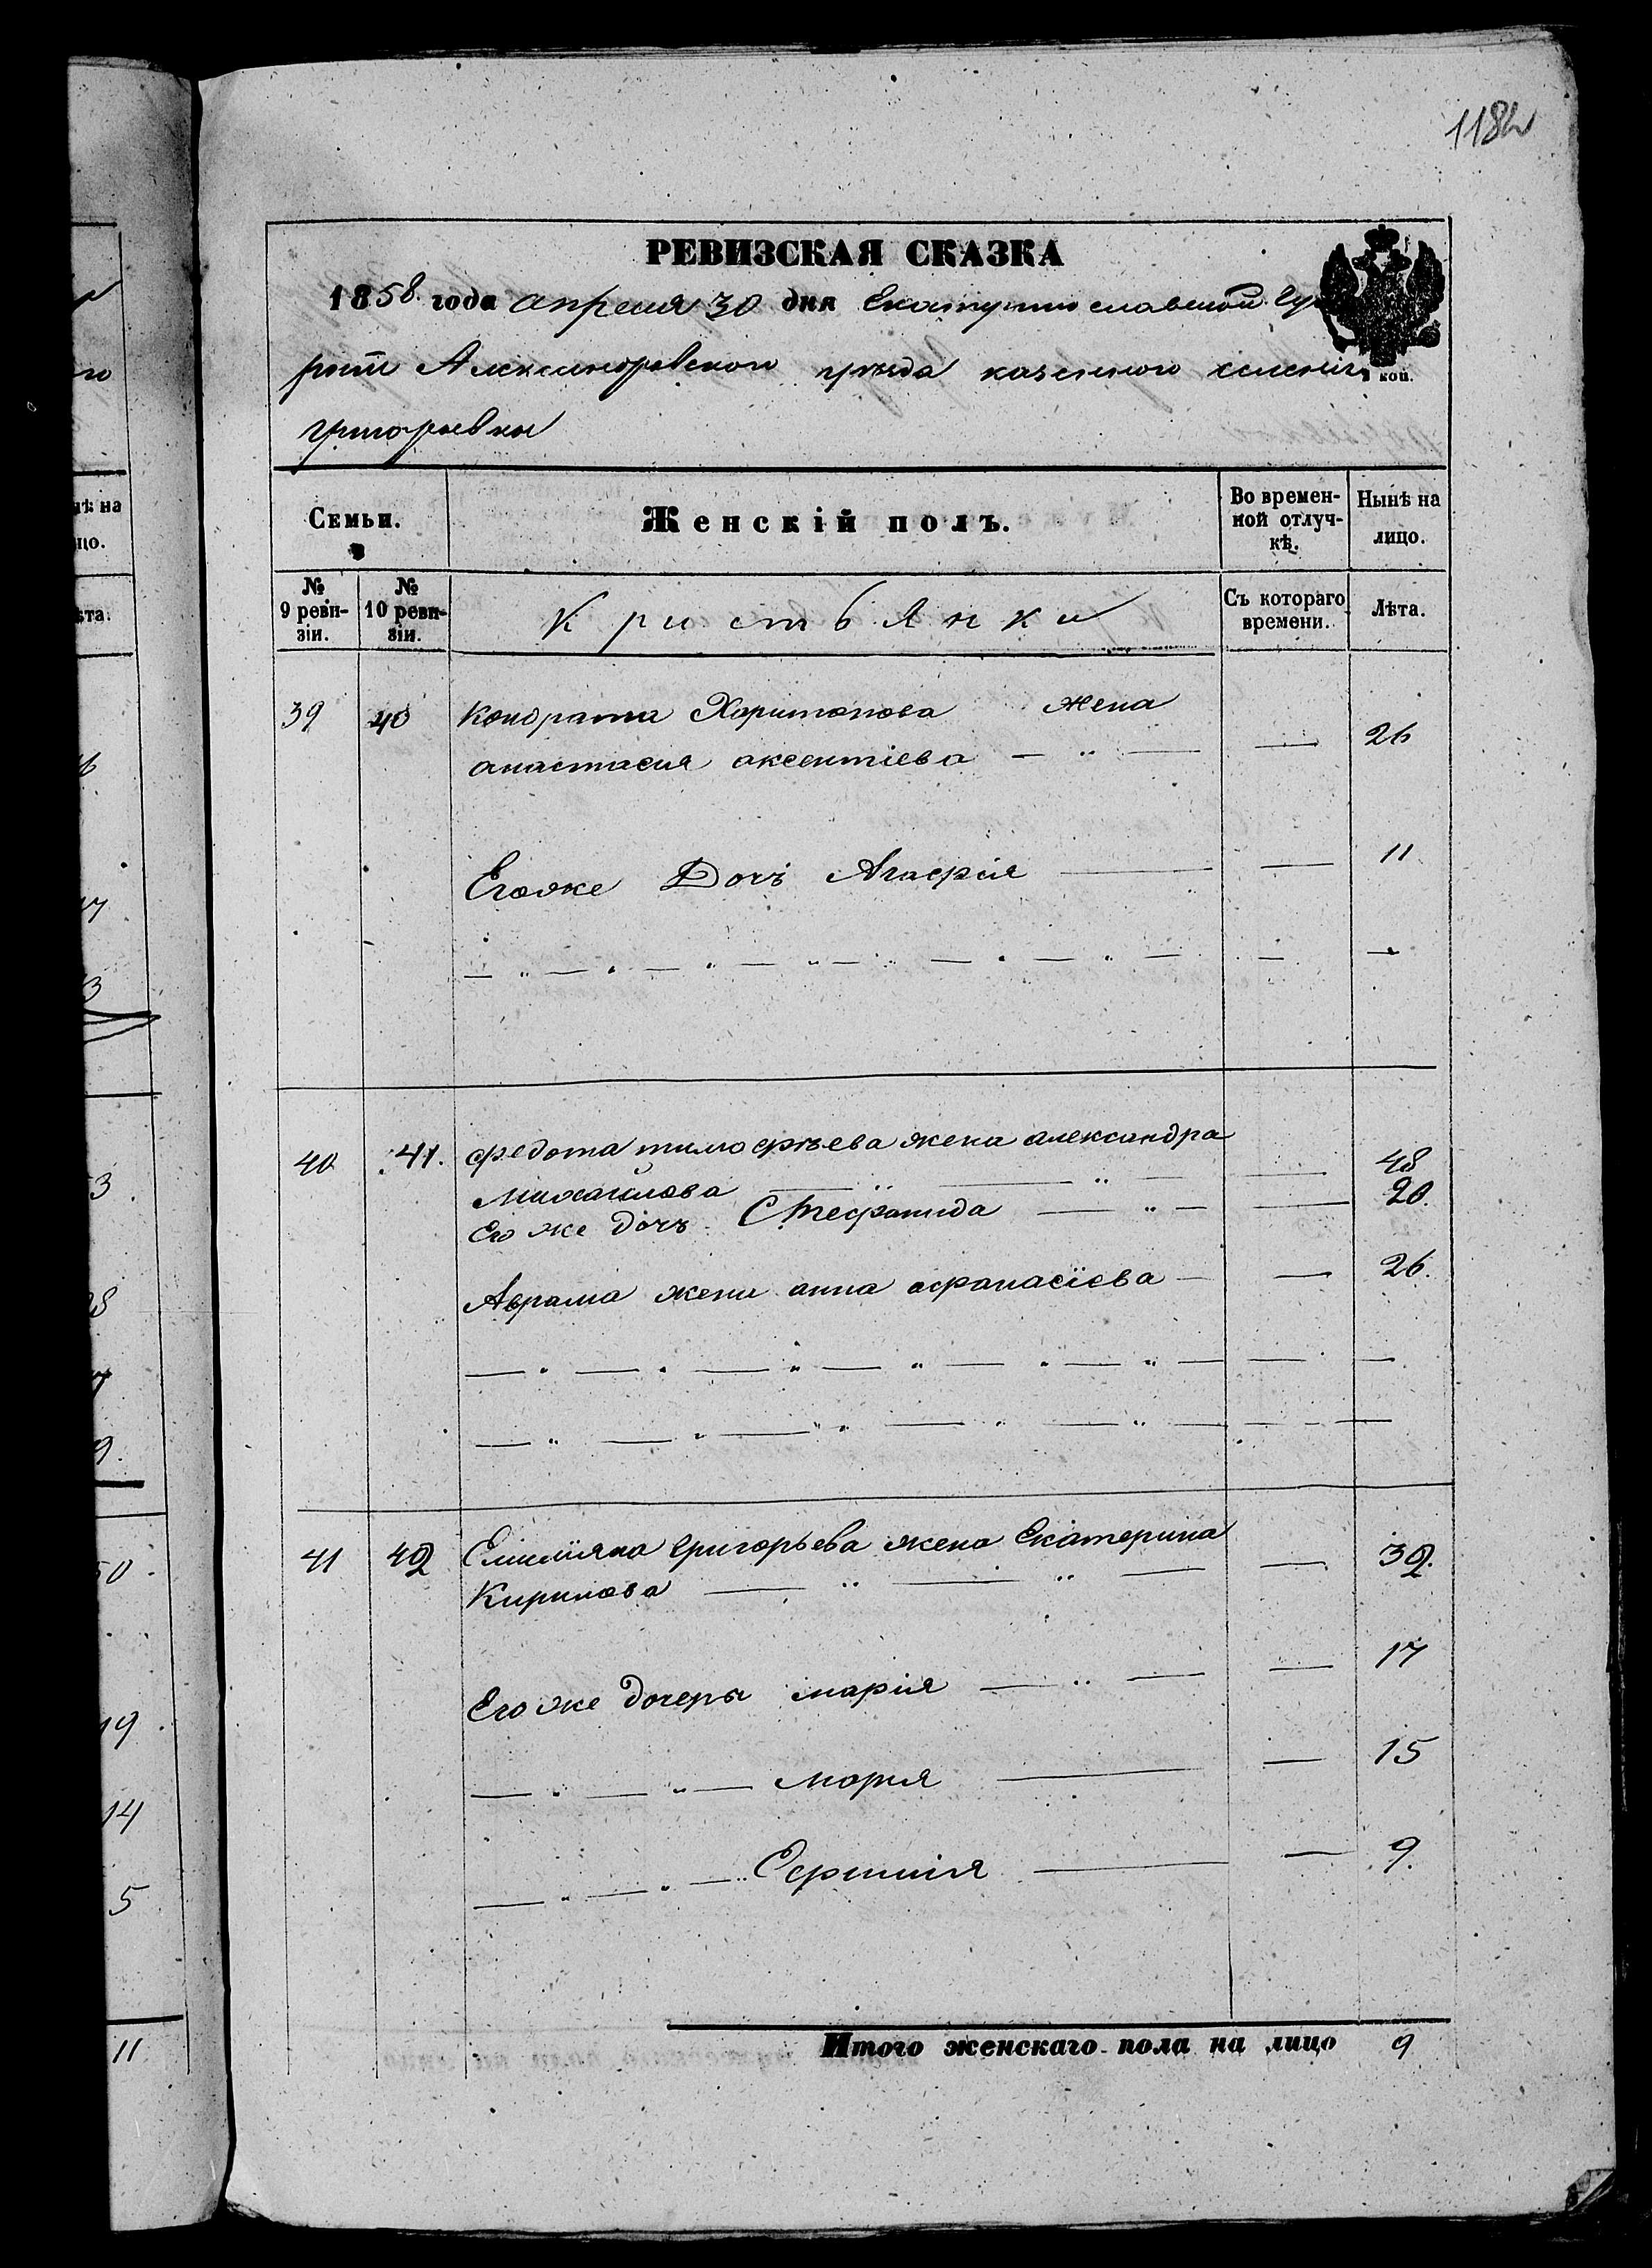 1182
РЕВИЗСКАЯ СКАЗКА
1858 года апреля 30 дня Екатеринославской Губ
рніи Александровскаго уѣзда казенного селенія
Григорьевки
кои.
Семьи. Женскій полъ. Во времен-ной отлуч-кѣ. Нынѣ на лицо.
№ 9 реви-зіи. № 10 реви-зіи. Кристьянки Съ котораго времени. Лѣта.
39 40 Кондрата Харитонова жена
анастасия аксентіева — " — — 26
Егоже Дочь Агафія — — 11
40 41. федота тимофѣева жена александра
Михайлова — " — " — — 48
Его же дочь Стефанида — " — — 20.
Аврама жена анна афанасіева — — 26.
41 42 Емилияна Григорьева жена Екатерина
Кирилова — " — " — — 32.
Его же дочери марія — " — — 17
— " — " — марія — — 15
— " — " — " Ефимія — — 9.
Итого женскаго пола на лицо 9
нѣ на
цо.
ѣта.
3
3
50
19
14
5
11